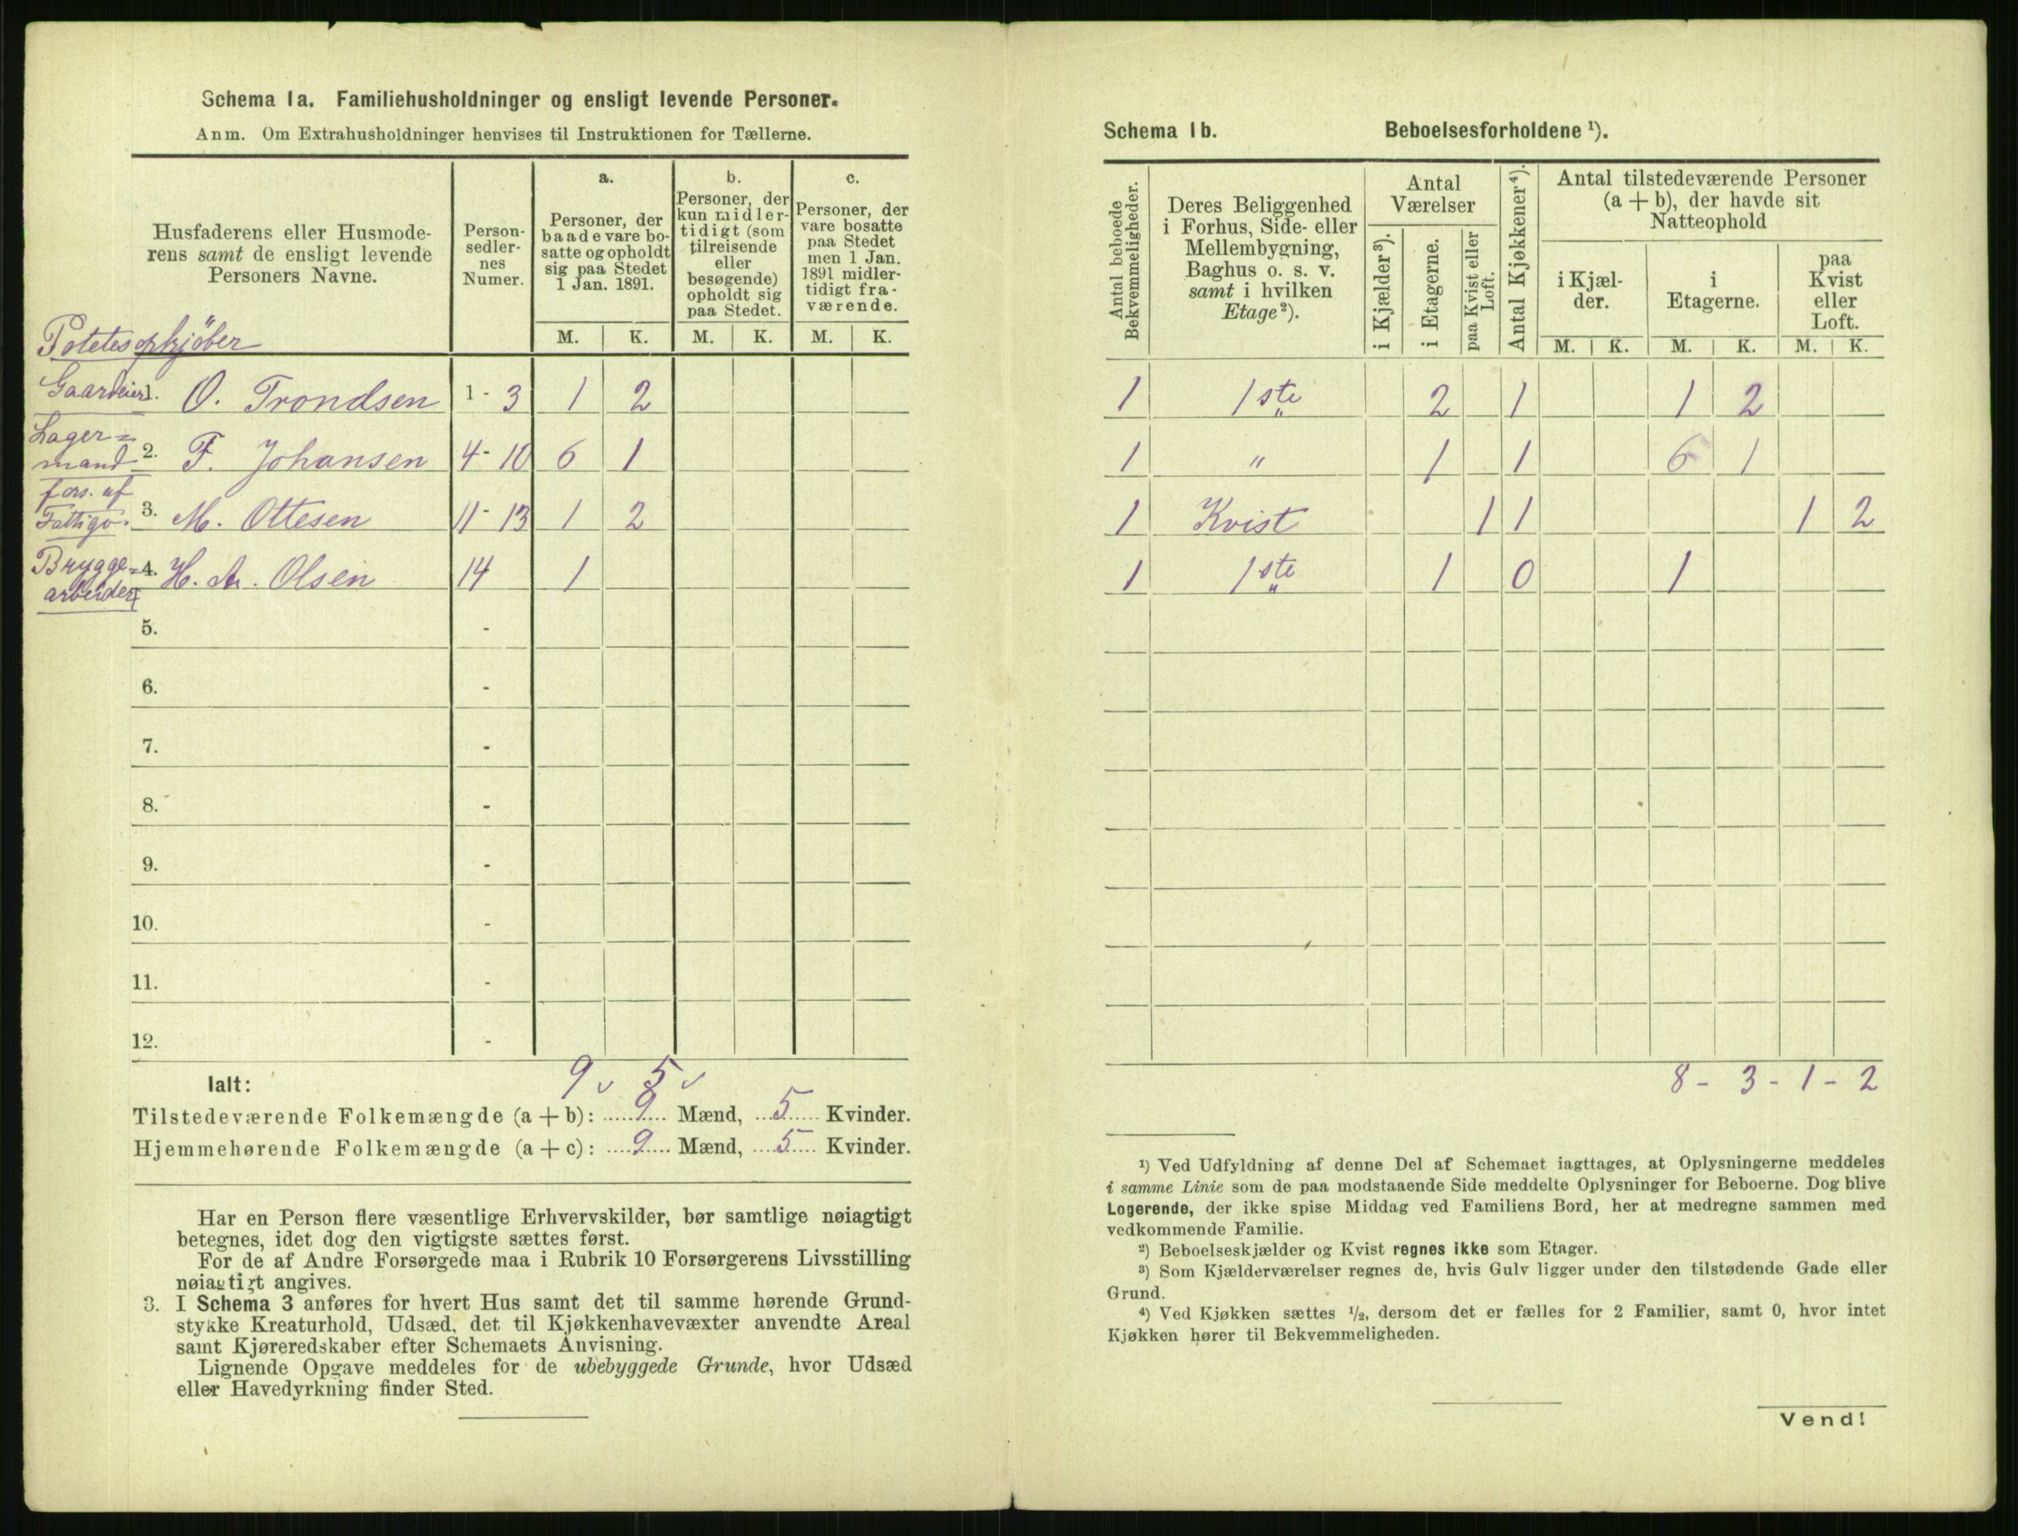 Schema 1a. Familiehusholdninger og ensligt levende Personer.
Anm. Om Extrahusholdninger henvises til Instruktionen for Tællerne.
Husfaderens eller Husmode-
rens samt de ensligt levende
Personers Navne.
Person-
sedler-
nes
Numer.
a.
Personer, der
baade vare bo-
satte og opholdt
sig paa Stedet
1 Jan. 1891.
b.
Personer, der
kun midler-
tidigt (som
tilreisende
eller
besøgende)
opholdt sig
paa Stedet.
c.
Personer, der
vare bosatte
paa Stedet
men 1 Jan.
1891 midler-
tidigt fra-
værende.
M. K. M. K. M. K.
Potetesopkjöber
Gaardeier 1. O. Trondsen 1 - 3 1 2
Lager=
mand 2. F. Johansen 4 - 10 6 1
fors. af
Fattigv. 3. M. Ottesen 11 - 13 1 2
Brygge=
arbeider 4. H. A. Olsen 14 1
5. -
6. -
7. -
8. -
9. -
10. -
11. -
12. -
9 5
Ialt:
Tilstedeværende Folkemængde (a + b): 9 Mænd, 5 Kvinder.
Hjemmehørende Folkemængde (a + c): 9 Mænd, 5 Kvinder.
Har en Person flere væsentlige Erhvervskilder, bør samtlige nøiagtigt
betegnes, idet dog den vigtigste sættes først.
For de af Andre Forsørgede maa i Rubrik 10 Forsørgerens Livsstilling
nøiagtigt angives.
3. I Schema 3 anføres for hvert Hus samt det til samme hørende Grund-
stykke Kreaturhold, Udsæd, det til Kjøkkenhavevæxter anvendte Areal
samt Kjøreredskaber efter Schemaets Anvisning.
Lignende Opgave meddeles for de ubebyggede Grunde, hvor Udsæd
eller Havedyrkning finder Sted.
Schema 1b. Beboelsesforholdene ¹).
Antal beboede
Bekvemmeligheder.
Deres Beliggenhed
i Forhus, Side- eller
Mellembygning,
Baghus o. s. v.
samt i hvilken
Etage ²).
Antal
Værelser
i Kjælder ³).
i Etagerne.
paa Kvist eller
Loft.
Antal Kjøkkener ⁴).
Antal tilstedeværende Personer
(a + b), der havde sit
Natteophold
i Kjæl-
der.
i
Etagerne.
paa
Kvist
eller
Loft.
M. K. M. K. M. K.
1 1ste 2 1 1 2
1 " 1 1 6 1
1 Kvist 1 1 1 2
1 1ste 1 0 1
8 - 3 - 1 - 2
¹) Ved Udfyldning af denne Del af Schemaet iagttages, at Oplysningerne meddeles
i samme Linie som de paa modstaaende Side meddelte Oplysninger for Beboerne. Dog blive
Logerende, der ikke spise Middag ved Familiens Bord, her at medregne sammen med
vedkommende Familie.
²) Beboelseskjælder og Kvist regnes ikke som Etager.
³) Som Kjælderværelser regnes de, hvis Gulv ligger under den tilstødende Gade eller
Grund.
⁴) Ved Kjøkken sættes ½, dersom det er fælles for 2 Familier, samt 0, hvor intet
Kjøkken hører til Bekvemmeligheden.
Vend!